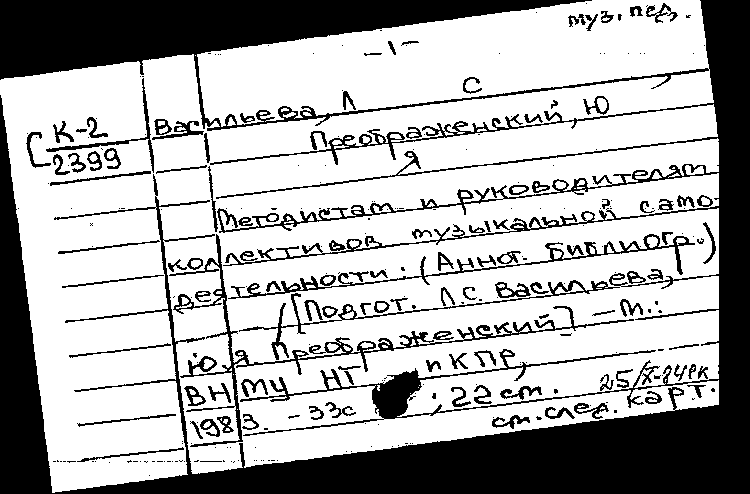 муз. пед.
-1-
К-2
2399
Васильева, Л С
Преображенский, Ю
Я
Методистам и руководителям
коллективов музыкальной само-
деятельности: (Аннот. библиогр.)
/[Подгот. Л.С. Васильева,
Ю.Я Преображенский] - М.:
ВНМЦ НТ и КПР,
1983. - 33с ; 22 см.
25/X-84
см. след. карт.